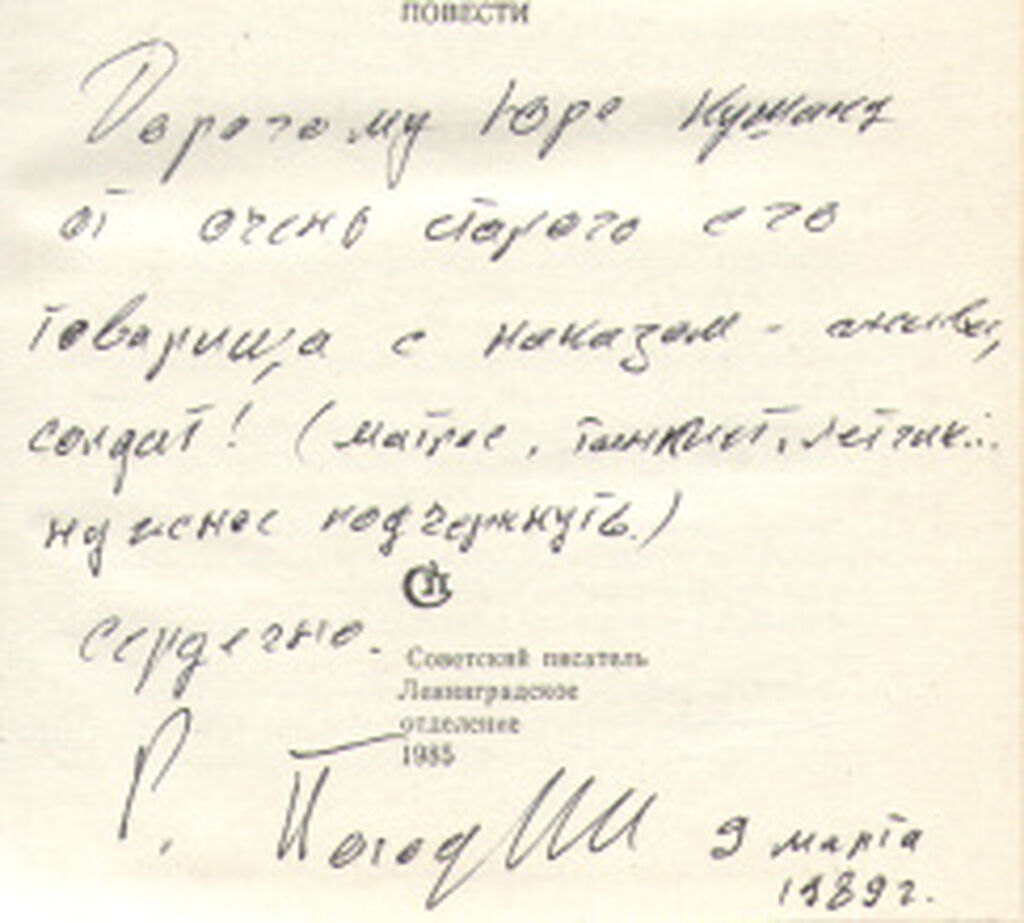 ПОВЕСТИ
Дорогому Юре Кушаку
от очень старого его
товарища с наказом - живи,
солдат! (матрос, танкист, летчик...
нужное подчеркнуть.)
СП
Сердечно.
Советский писатель
Ленинградское
отделение
1985
Р. Погодин
9 марта
1989 г.